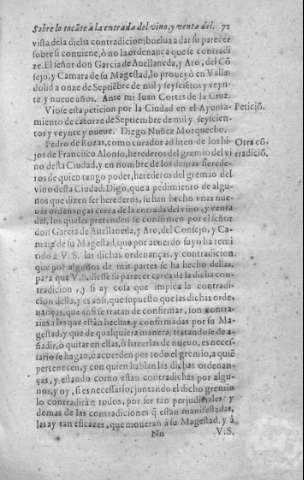 Sobre lo tocãte à la entrada del vino, y venta del. 72
vista de la dicha contradicion, buelua a dar su parecer
sobre si conuiene, ò no la ordenança que se contradi
ze. El señor don Garcia de Auellaneda, y Aro, del Cõ
sejo, y Camara de su Magestad, lo proueyò en Valla-
dolid a onze de Septiẽbre de mil y seyscientos y veyn
te y nueue años. Ante mi Iuan Cortes de la Cruz.
Viose esta peticion por la Ciudad en el Ayunta- Peticiõ.
miento de catorze de Septiembre de mil y seyscien-
tos y veynte y nueue. Diego Nuñez Morquecho.
Pedro de Rozas, como curador ad litem de los hi- Otra cõ
jos de Francisco Alonso, herederos del gremio del vi tradiciõ.
no desta Ciudad, y en nombre de los demas herede-
ros de quien tengo poder, herederos del gremio del
vino desta Ciudad: Digo, que a pedimiento de algu-
nos que dizen ser herederos, se han hecho vnas nue-
uas ordenanças cerca de la entrada del vino, y venta
del, las quales pretenden se confirmen por el señor
don Garcia de Auellaneda, y Aro, del Consejo, y Ca-
mara de su Magestad, que por acuerdo suyo ha remi
tido a V.S. las dichas ordenanças, y contradicion
que por algunos de mis partes se ha hecho dellas,
para que V.S. diesse su parecer cerca de la dicha con-
tradicion, y si ay cosa que impida la contradi-
cion della, y es assi, que supuesto que las dichas orde-
nanças, que aora se tratan de confirmar, son contra-
rias a las que estàn hechas, y confirmadas por su Ma-
gestad, y que de qualquiera manera, tratandose de a-
ñadir, ò quitar en ellas, ò hazerlas de nueuo, es neces-
sario se hagan, ò acuerden por todo el gremio, a quiẽ
pertenecen, y con quien hablan las dichas ordenan-
ças, y estando como estàn contradichas por algu-
nos, y oy, si es necessario, juntando el dicho gremio
lo contradirà n todos, por ser tan perjudiciales: y
demas de las contradiciones q̃ estàn manifestadas,
las ay tan eficazes, que moueràn à su Magestad, y à
Nn V.S.